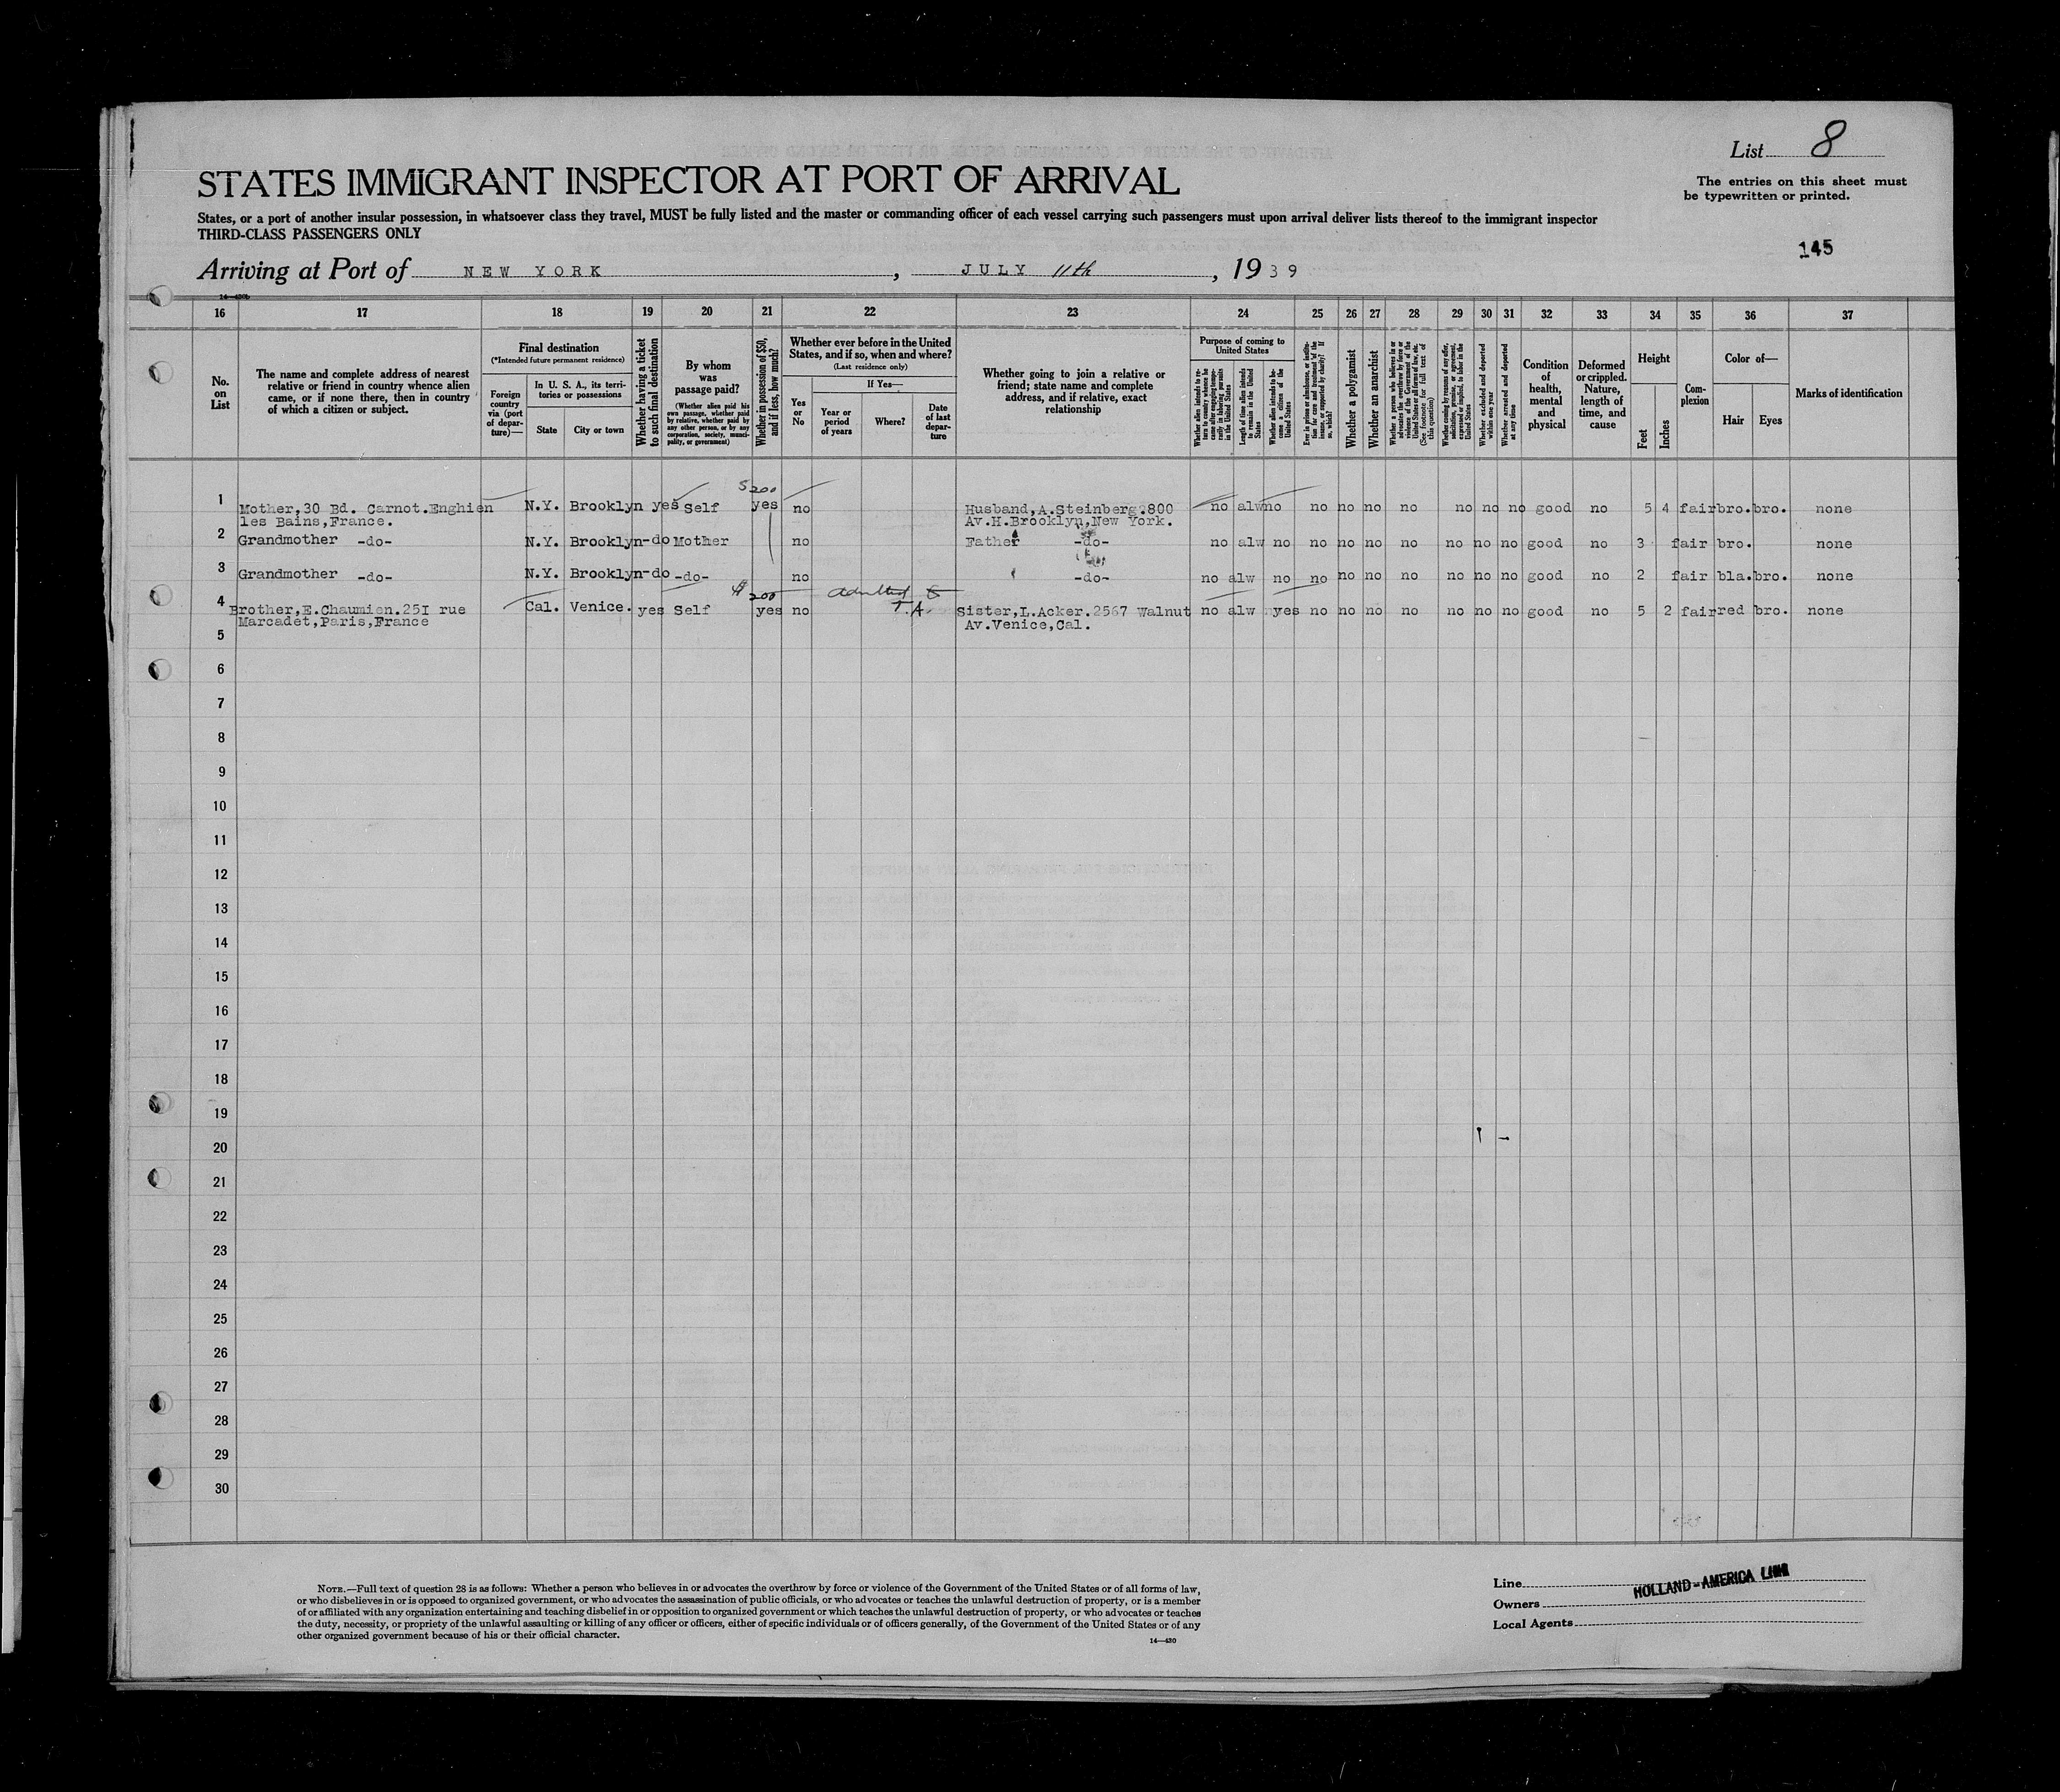 List 8
STATES IMMIGRANT INSPECTOR AT PORT OF ARRIVAL
The entries on this sheet must
be typewritten or printed.
States, or a port of another insular possession, in whatsoever class they travel, MUST be fully listed and the master or commanding officer of each vessel carrying such passengers must upon arrival deliver lists thereof to the immigrant inspector
THIRD-CLASS PASSENGERS ONLY
145
Arriving at Port of NEW YORK, JULY 11th, 1939
16 17 18 19 20 21 22 23 24 25 26 27 28 29 30 31 32 33 34 35 36 37
No. on List
The name and complete address of nearest relative or friend in country whence alien came, or if none there, then in country of which a citizen or subject.
Final destination
(*Intended future permanent residence)
Foreign country via (port of departure)—
In U. S. A., its territories or possessions
State
City or town
Whether having a ticket to such final destination
By whom was passage paid?
(Whether alien paid his own passage, whether paid by relative, whether paid by any other person, or by any corporation, society, municipality, or government)
Whether in possession of $50, and if less, how much?
Whether ever before in the United States, and if so, when and where?
(Last residence only)
Yes or No
If Yes—
Year or period of years
Where?
Date of last departure
Whether going to join a relative or friend; state name and complete address, and if relative, exact relationship
Purpose of coming to United States
Whether alien intends to return to country whence he came after engaging temporarily in laboring pursuits in the United States
Length of time alien intends to remain in the United States
Whether alien intends to become a citizen of the United States
Ever in prison or almshouse, or institution for care and treatment of the insane, or supported by charity? If so, which?
Whether a polygamist
Whether an anarchist
Whether a person who believes in or advocates the overthrow by force or violence of the Government of the United States or all forms of law, etc. (See footnote for full text of this question)
Whether coming by reason of any offer, solicitation, promise, or agreement, expressed or implied, to labor in the United States
Whether excluded and deported within one year
Whether arrested and deported at any time
Condition of health, mental and physical
Deformed or crippled. Nature, length of time, and cause
Height
Feet
Inches
Complexion
Color of—
Hair
Eyes
Marks of identification
$200
1 Mother,30 Bd. Carnot.Enghien N.Y. Brooklyn yes Self yes no Husband,A.Steinberg.800 no alw no no no no no no no no good no 5 4 fair bro. bro. none
les Bains,France. Av.H.Brooklyn,New York.
2 Grandmother -do- N.Y. Brooklyn-do Mother no Father -do- no alw no no no no no no no no good no 3 fair bro. none
3 Grandmother -do- N.Y. Brooklyn-do -do- no -do- no alw no no no no no no no no good no 2 fair bla. bro. none
$200 admitted
4 Brother,E.Chaumien.25I rue Cal. Venice. yes Self yes no T.A. Sister,L.Acker.2567 Walnut no alw yes no no no no no no no good no 5 2 fair red bro. none
Marcadet,Paris,France Av.Venice,Cal.
5
6
7
8
9
10
11
12
13
14
15
16
17
18
19
20
21
22
23
24
25
26
27
28
29
30
NOTE.—Full text of question 28 is as follows: Whether a person who believes in or advocates the overthrow by force or violence of the Government of the United States or of all forms of law,
or who disbelieves in or is opposed to organized government, or who advocates the assassination of public officials, or who advocates or teaches the unlawful destruction of property, or is a member
of or affiliated with any organization entertaining and teaching disbelief in or opposition to organized government or which teaches the unlawful destruction of property, or who advocates or teaches
the duty, necessity, or propriety of the unlawful assaulting or killing of any officer or officers, either of specific individuals or of officers generally, of the Government of the United States or of any
other organized government because of his or their official character.
14—430
Line HOLLAND-AMERICA LINE
Owners
Local Agents